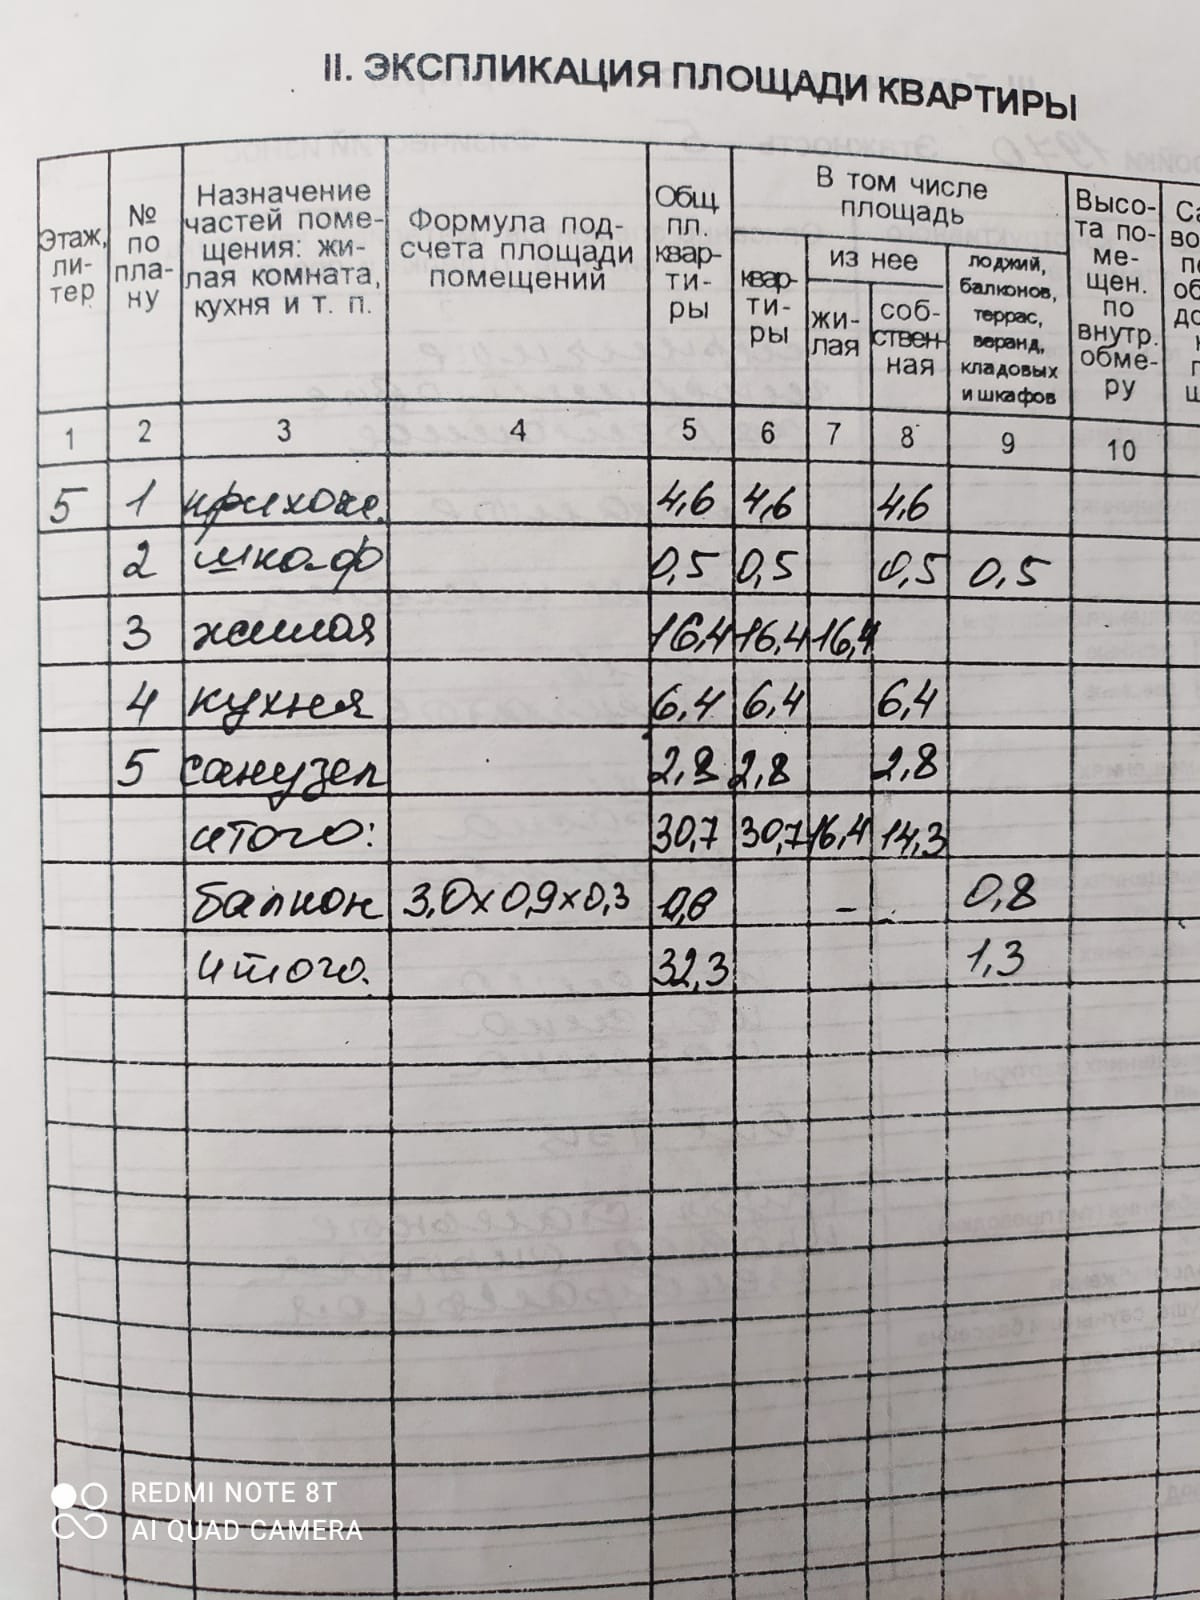 II. ЭКСПЛИКАЦИЯ ПЛОЩАДИ КВАРТИРЫ
Этаж, ли- тер
№ по пла- ну
Назначение частей поме- щения: жи- лая комната, кухня и т. п.
Формула под- счета площади помещений
Общ. пл. квар- ти- ры
В том числе площадь
квар- ти- ры
из нее
жи- лая
соб- ствен- ная
лоджий, балконов, террас, веранд, кладовых и шкафов
Высо- та по- ме- щен. по внутр. обме- ру
1 2 3 4 5 6 7 8 9 10
5 1 прихож. 4,6 4,6 4,6
2 шкаф 0,5 0,5 0,5 0,5
3 жилая 16,4 16,4 16,4
4 кухня 6,4 6,4 6,4
5 санузел 2,8 2,8 2,8
итого: 30,7 30,7 16,4 14,3
балкон 3,0х0,9х0,3 - 0,8
итого. 32,3 1,3
REDMI NOTE 8T
AI QUAD CAMERA